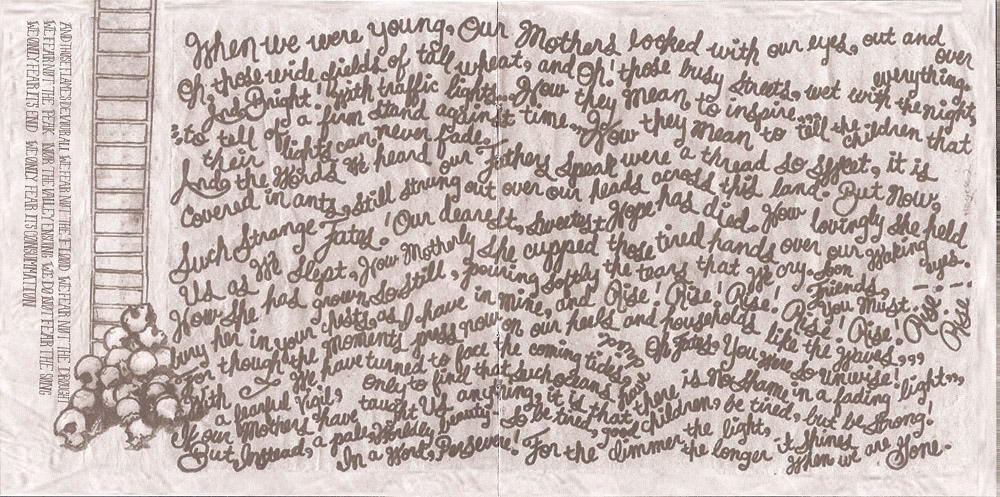 AND THOSE FLAMES DEVOUR ALL WE FEAR NOT THE FIEND WE FEAR NOT THE DROUGHT
WE FEAR NOT THE PEAK NOR THE VALLEY ENSUING WE DO NOT FEAR THE SONG
WE ONLY FEAR ITS END WE ONLY FEAR ITS CONSUMMATION
When we were young, Our Mothers looked with our eyes, out and over
Oh, those wide fields of tall wheat, and Oh! those busy streets, wet with the night, everything.
And Bright! With traffic lights... How they mean to inspire...
to tell of a firm stand against time... How they mean to tell the children that
their lights can never fade.
And the Words We heard our Fathers speak were a thread so sweet, it is
Covered in ants, still strung out over our heads across this land. But Now,
Such Strange Fates! Our dearest, Sweetest Hope has died. How lovingly she held
Us as We slept, How Motherly She cupped those tired hands over our Waking eyes.
How She has grown So Still, pouring softly the tears that We cry. Soon Friends, You Must
bury her in your chests, as I have in mine, and Rise! Rise! Rise! Rise! Rise! Rise! Rise!
For though the moments press now on our heels and households like the Waves,,,
We have turned to face the coming tides, Oh Fates! You were so unwise!
With a fearful Vigil, only to find that such oceans is no shame in a fading light,,,
If our Mothers have taught Us anything, it is that there
But Instead, a pale, Wonesley beauty, so be tired, good children, be tired, but be strong!
In a Word, Persevere! For the dimmer the light, the longer it shines When we are Gone.